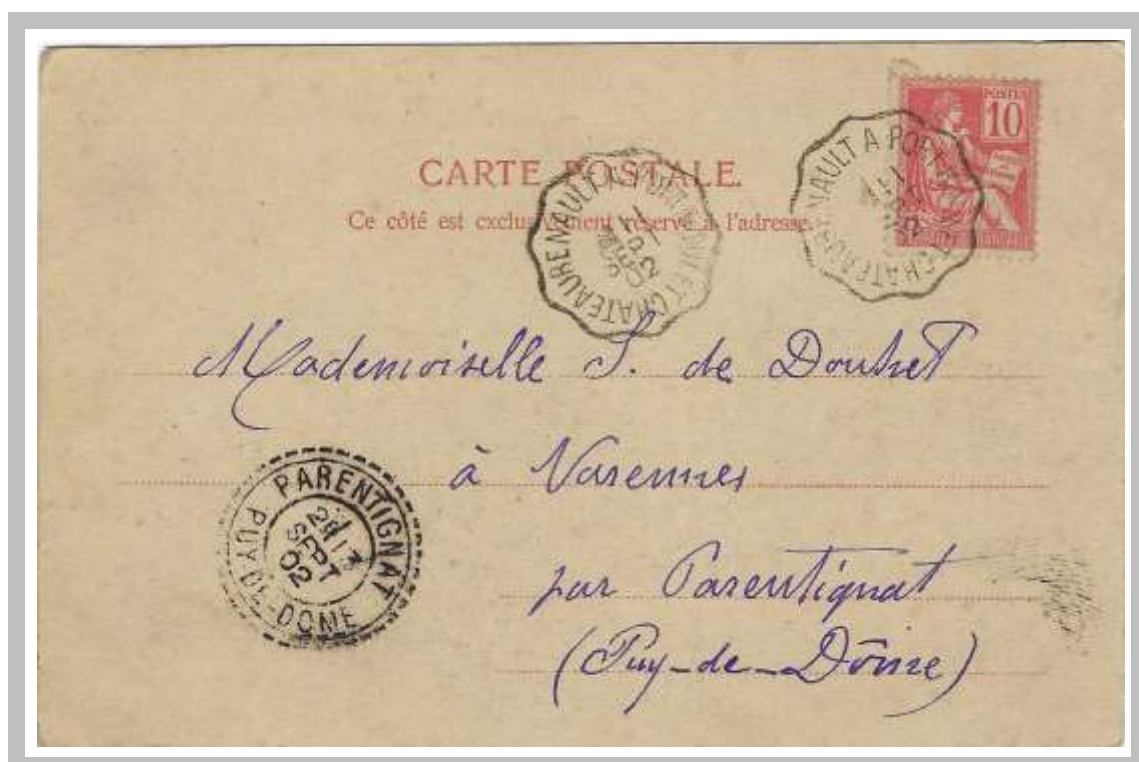 POSTES
10
CARTE POSTALE.
Ce côté est exclusivement réservé à l'adresse.
CHATEAURENAULT A PORT ET CHATEAURENAULT A
11
SEPT
02
Mademoiselle S. de Douhet
à Varennes
par Parentignat
(Puy-de-Dôme)
PARENTIGNAT
13
SEPT
02
PUY-D-DOME